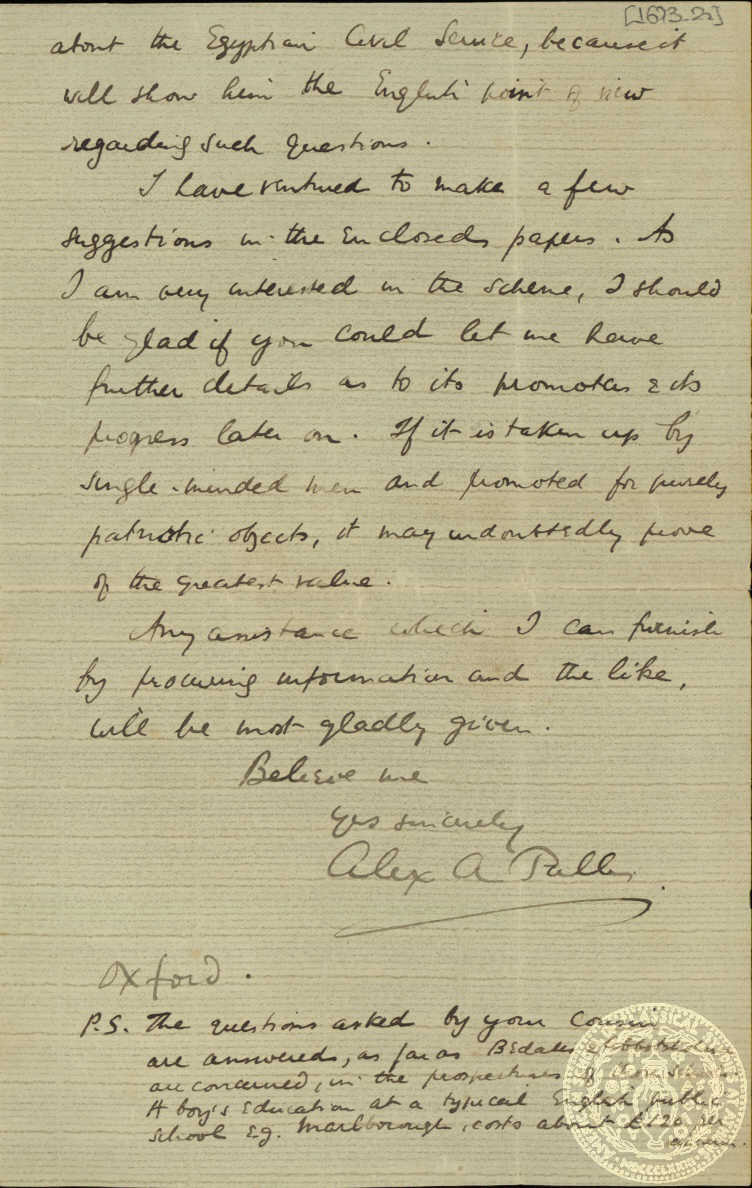 [1673-2v]
about the Egyptian Civil Service, because it
will show him the English point of view
regarding such questions.
I have ventured to make a few
suggestions in the enclosed papers. As
I am very interested in the scheme, I should
be glad if you could let me have
further details as to its promoters & its
progress later on. If it is taken up by
single-minded men and promoted for purely
patriotic objects, it may undoubtedly prove
of the greatest value.
Any assistance which I can furnish
by procuring information and the like,
will be most gladly given.
Believe me
Yrs sincerely
Alex A Pallis
Oxford.
P.S. The questions asked by your cousin
are answered, as far as Bedales &
are concerned, in the prospectuses of
A boy's education at a typical English public
school e.g. Marlborough, costs about £120 per
annum.